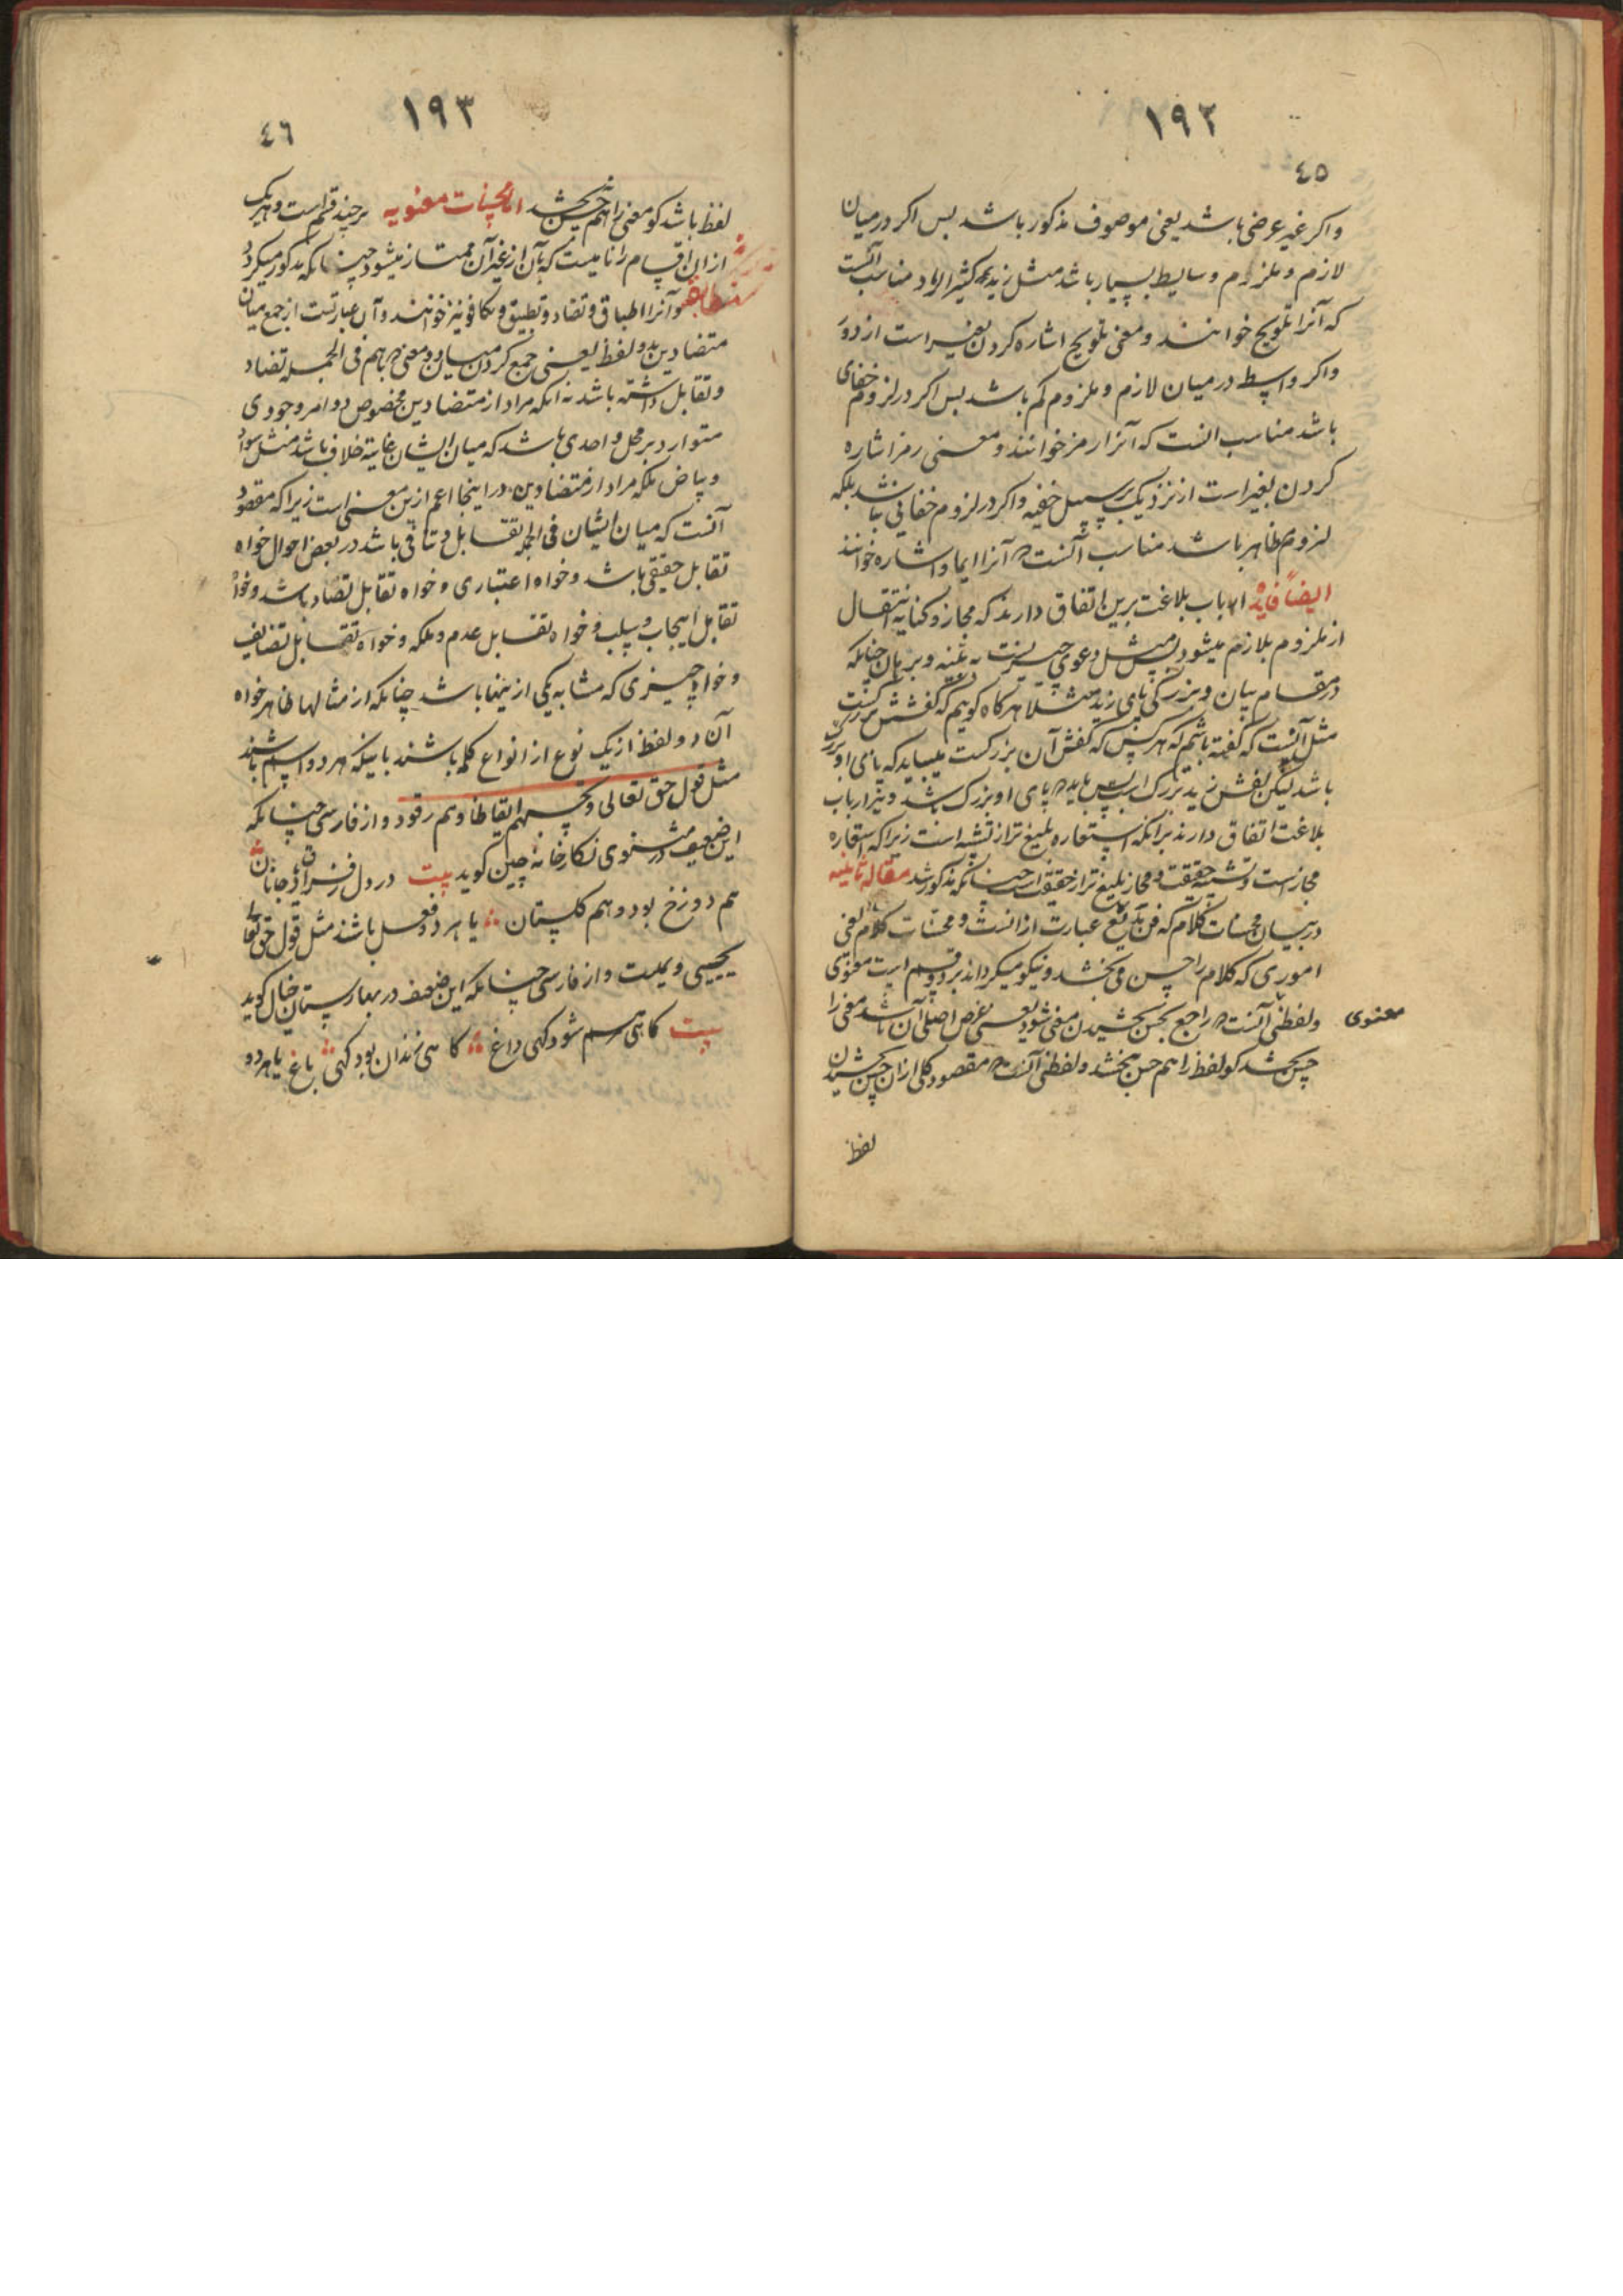 ١٩٢
٤٥
واکر غیر عرضی باشد یعنی موصوف مذکور باشد بس اکر در میان
لازم و ملزوم وسایط بسیار باشد مثل زید کثیر الرماد مناسب آنست
که آنرا تلویح خوانند و معنی تلویح اشاره کردن بغیر است از دور
واکر واسطه در میان لازم و ملزوم کم باشد بس اکر در لزوم خفای
باشد مناسب انست که آنرا رمز خوانند و معنی رمز اشاره
کردن بغیر است از نزدیک بر سبیل خفیه واکر در لزوم خفائی نباشد بلکه
لزوم ظاهر باشد مناسب آنست که آنرا ایما و اشاره خوانند
ایضاً فایده ارباب بلاغت برین اتفاق دارند که مجاز و کنایه انتقال
از ملزوم بلازم میشود بس مثل دعوی چیزیست به بینه و برهان چنانکه
در مقام بیان بزرکی پای زید مثلا هر کاه کویم که کفشش بزرکست
مثل آنست که کفته باشم که هر کس که کفش آن بزرکست میباید که پای او بزرک
باشد لیکن کفش زید بزرک است پس باید که پای او بزرک باشد و نیز ارباب
بلاغت اتفاق دارند برانکه استعاره بلیغ تر از تشبیه است زیرا که استعاره
مجاز است و تشبیه حقیقت و مجاز بلیغ تر از حقیقت است چنانکه مذکور شد مقاله ثانیه
در بیان محسنات کلام که فن بدیع عبارت از انست و محسنات کلام یعنی
اموری که کلام را حسن می بخشد و نیکو میکرداند بر دو قسم است معنوی
ولفظی آنست که راجع بحسن بخشیدن معنی شود یعنی غرض اصلی آن باشد معنی را
معنوی
حسن بخشد کو لفظ را هم حسن بخشد ولفظی آنست که مقصود کلی ازان حسن بخشیدن
لفظ
١٩٣
٤٦
لفظ باشد کو معنی را هم حسن بخشد اما محسنات معنویه بر چند قسم است و هر یک
ازان اقسام را نامیست که بآن از غیر آن ممتاز میشود چنانکه مذکور میکردد
مطابقه وآنرا طباق و تضاد و تطبیق و تکافو نیز خوانند وآن عبارتست از جمع میان
متضادین بدو لفظ یعنی جمع کردن میان دو معنی که باهم فی الجمله تضاد
و تقابل داشته باشد نه انکه مراد از متضادین مخصوص دو امر وجودی
متوارد بر محل واحدی باشد که میان ایشان غایة خلاف باشد مثل سواد
و بیاض بلکه مراد از متضادین در اینجا اعم ازین معنی است زیرا که مقصود
آنست که میان ایشان فی الجمله تقابل و تنافی باشد در بعض احوال خواه
تقابل حقیقی باشد و خواه اعتباری و خواه تقابل تضاد باشد و خواه
تقابل ایجاب و سلب و خواه تقابل عدم و ملکه و خواه تقابل تضایف
و خواه چیزی که مشابه یکی ازینها باشد چنانکه از مثالها ظاهر خواه
آن دو لفظ از یک نوع از انواع کلمه باشند باینکه هر دو اسم باشند
مثل قول حق تعالی و تحسبهم ایقاظا و هم رقود و از فارسی چنانکه
این ضعیف در مثنوی نکارخانهٔ چین کوید بیت در دل ز فراق و یاد جانان
هم دوزخ بود و هم کلستان یا هر دو فعل باشند مثل قول حق تعالی
یحیی و یمیت و از فارسی چنانکه این ضعیف در بهارستان خیال کوید
بیت کاهی مرهم شود کهی داغ کاهی زندان بود کهی باغ یا هر دو